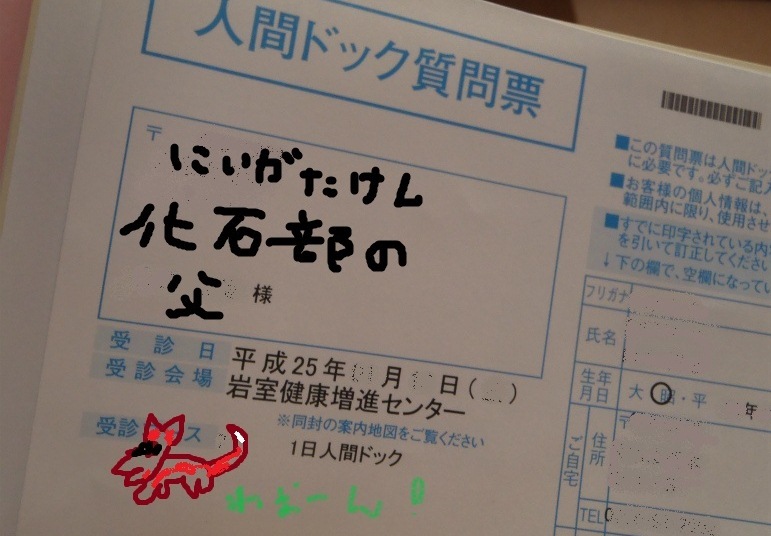 人間ドック質問票
〒
にいがたけん
化石部の
父 様
受診日 平成25年 月 日( )
受診会場 岩室健康増進センター
※同封の案内地図をご覧ください
受診 ス 1日人間ドック
わおーん!
■この質問票は人間ドッ
に必要です。必ずご記入
■お客様の個人情報は、
範囲内に限り、使用させ
■すでに印字されている内
を引いて訂正してください
↓下の欄で、空欄になってい
フリガナ
氏名
生年月日 大・昭・平 年
ご自宅
住所 〒
TEL